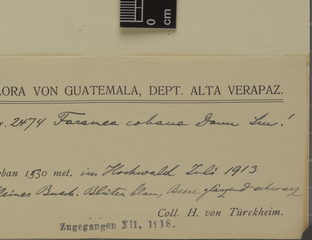 0 cm
LORA VON GUATEMALA, DEPT. ALTA VERAPAZ.
r. 2474 Faramea cobana Donn Sm!
oban 1350 met. im Hochwald Juli 1913
leiner Busch. Blüten blau, Beere glänzend schwarz
Coll. H. von Türckheim.
Zugegangen XII. 1918.